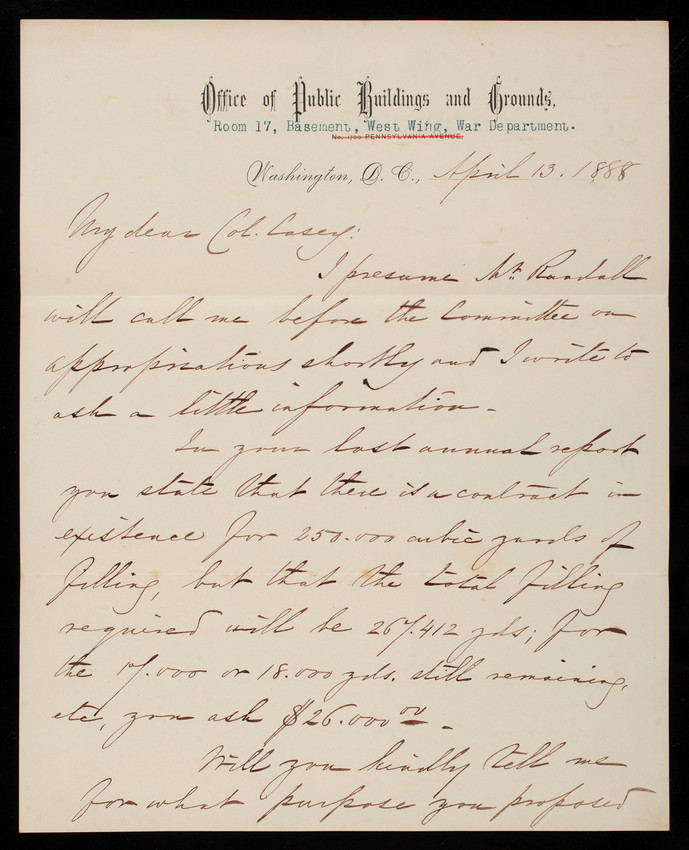 Office of Public Buildings and Grounds,
Room 17, Basement, West Wing, War Department.
No. 1700 PENNSYLVANIA AVENUE,
Washington, D. C., April 13. 1888
My dear Col. Casey:
I presume Mr. Randall
will call me before the Committee on
appropriations shortly and I write to
ask a little information -
In your last annual report
you state that there is a contract in
existence for 250.000 cubic yards of
filling, but that the total filling
required will be 267.412 yds; for
the 17.000 or 18.000 yds. still remaining,
etc, you ask $26.000 00 -
Will you kindly tell me
for what purpose you proposed